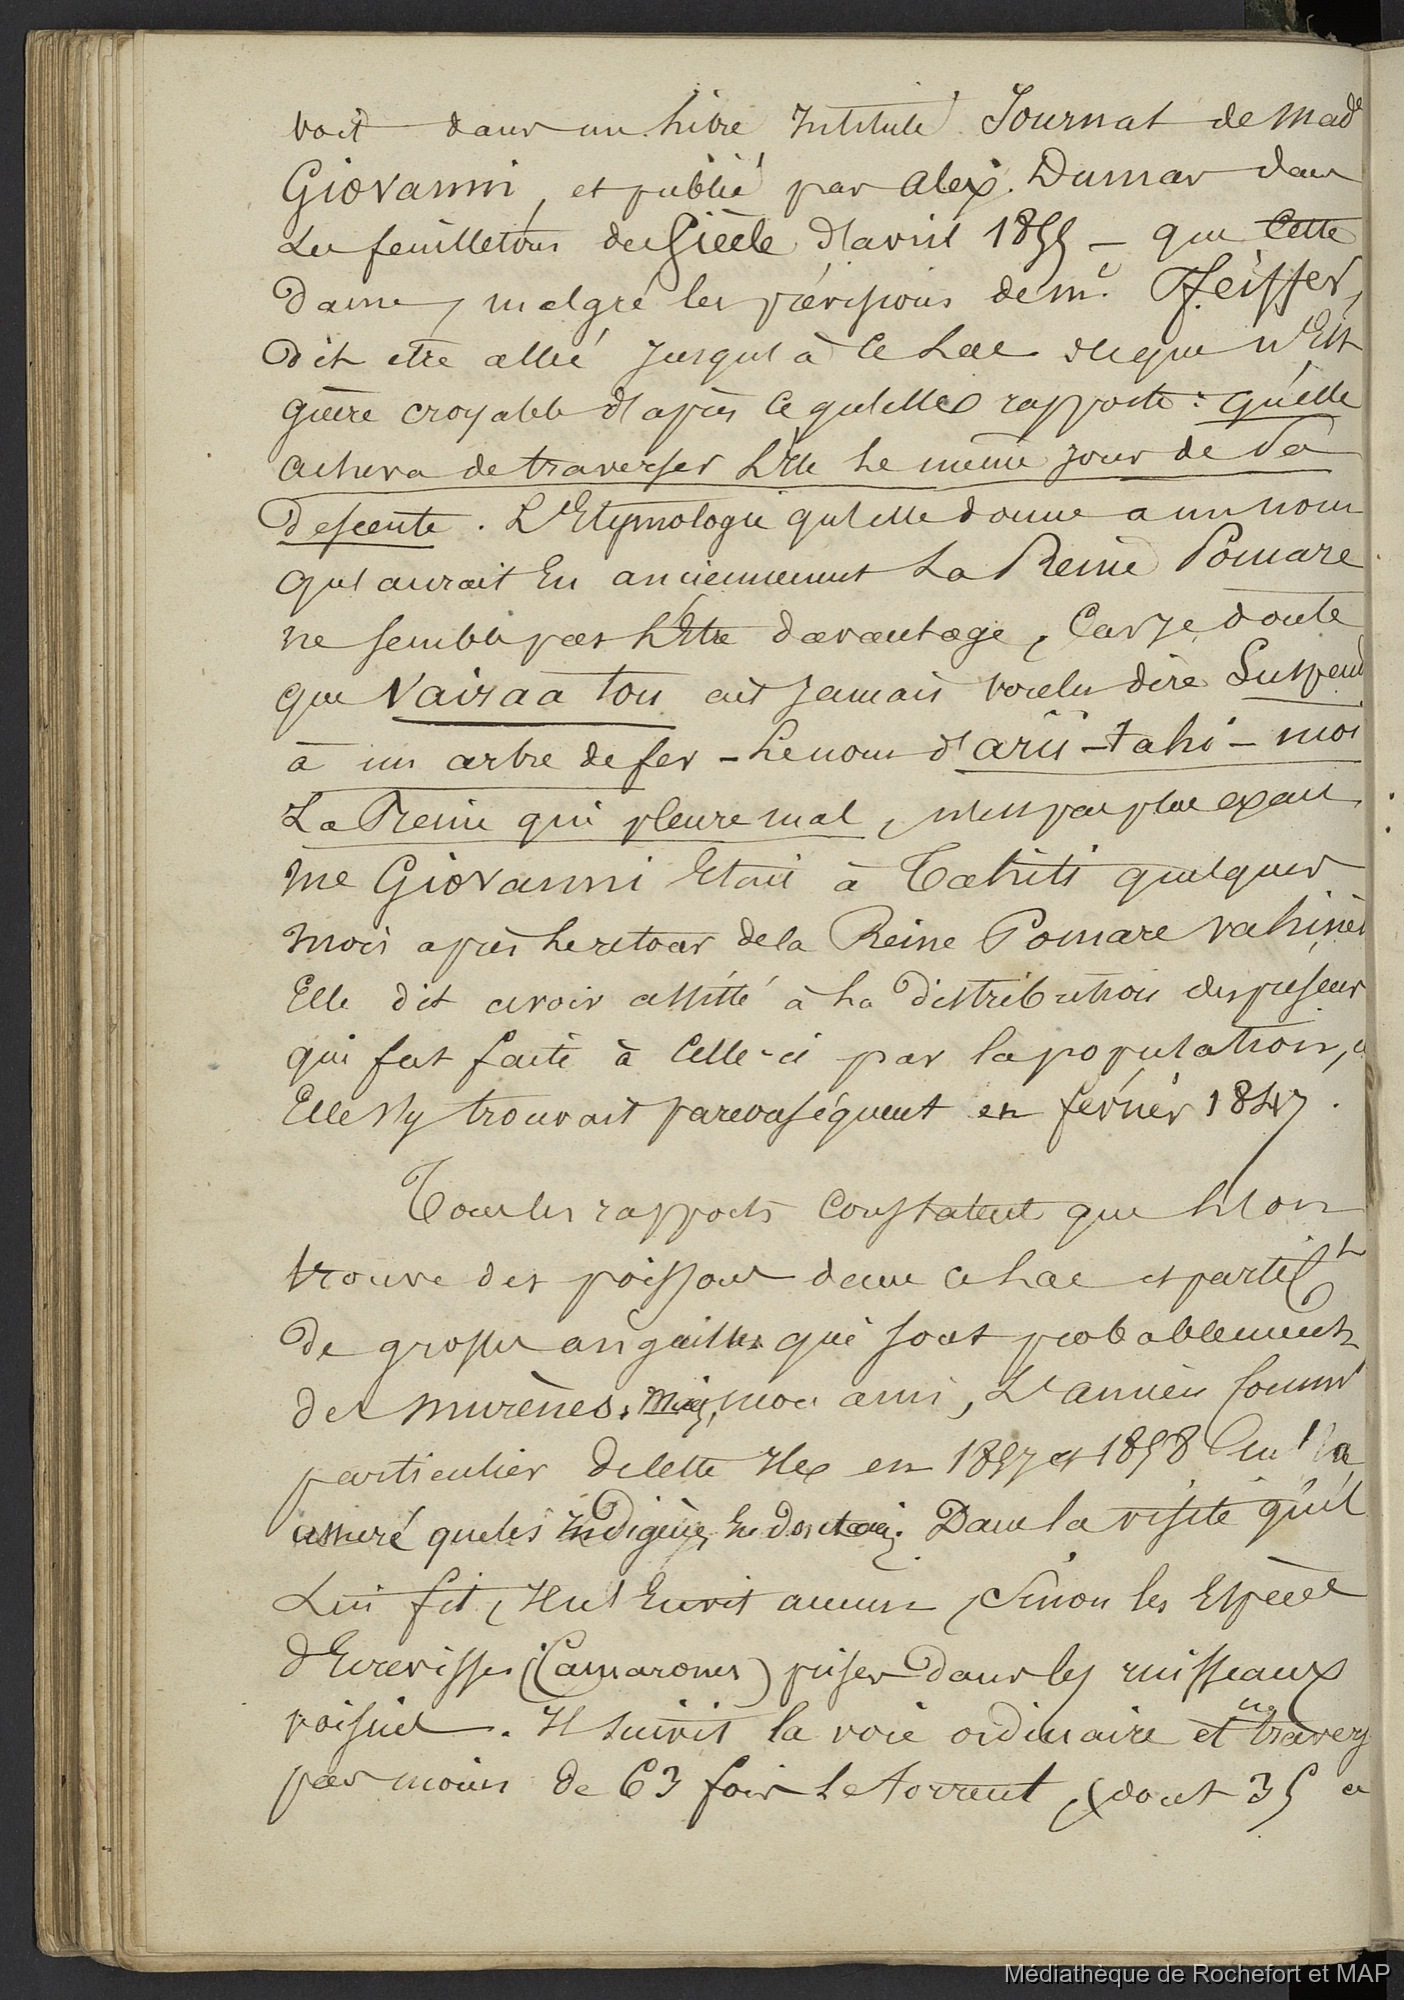 voit dans un livre Intitulé Journal de Mad^e
Giovanni, et publié par Alex. Dumas dans
Les feuilletons du Siècle d'avril 1855 – que Cette
Dame, malgré les prévisions de m.^e Pfeiffer,
Dit etre allée Jusqu'à ce Lac ce que n'Est
guère croyable d'après ce qu'elle rapporte : qu'elle
acheva de traverser L'Ile Le meme jour de Sa
descente. L'Etymologie qu'elle donne a un nom
qu'aurait Eu anciennement La Reine Pomare
ne semble pas L'Etre davantage, Car Je doute
que Vairaa tou ait Jamais voulu dire Suspendu
à un arbre de fer – Le nom d'arii-tahi-mai
La Reine qui pleure mal, n'est pas plus exact
Me Giovanni Etait à Tahiti quelques
mois après Le retour de la Reine Pomare vahiné
Elle dit avoir assisté à La distribution des présens
qui fut faite à Celle-ci par la population,
Elle s'y trouvait par conséquent en février 1847.
Tous les rapports Constatent que L'on
trouve des poissons dans ce Lac et partic^t
De grosses anguilles qui sont probablement
des murènes. mais, mon ami, L'ancien Comm^r
particulier de Cette Ile en 1857 et 1858 m'a
assuré que les Indigènes En doutaient. Dans la visite qu'il
Lui fit, Il n'En vit aucun, Sinon les Espèces
d'Ecrevisses (Camarones) prises dans les ruisseaux
voisins. Il suivit la voie ordinaire et ne travers
pas moins de 63 fois Le torrent, (dont 35 a
Médiathèque de Rochefort et MAP